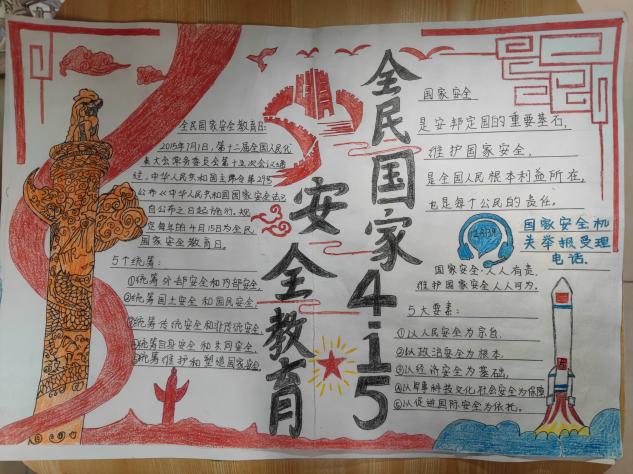 全民国家4·15
安全教育
全民国家安全教育日:
2015年7月1日,第十二届全国人民代
表大会常务委员会第十五次会议通
过,中华人民共和国主席令第29号
公布《中华人民共和国国家安全法》
自公布之日起施行.规
定每年的4月15日为全民
国家安全教育日。
5个统筹:
①统筹外部安全和内部安全,
②统筹国土安全和国民安全,
③统筹传统安全和非传统安全,
④统筹自身安全和共同安全,
⑤统筹维护和塑造国家安全,
国家安全
是安邦定国的重要基石,
维护国家安全,
是全国人民根本利益所在,
也是每个公民的责任。
国家安全机
关举报受理
电话.
12339
国家安全.人人有责,
维护国家安全人人可为.
5大要素:
①以人民安全为宗旨.
②以政治安全为根本.
③以经济安全为基础,
④以军事科技文化社会安全为保障
⑤以促进国际安全为依托。